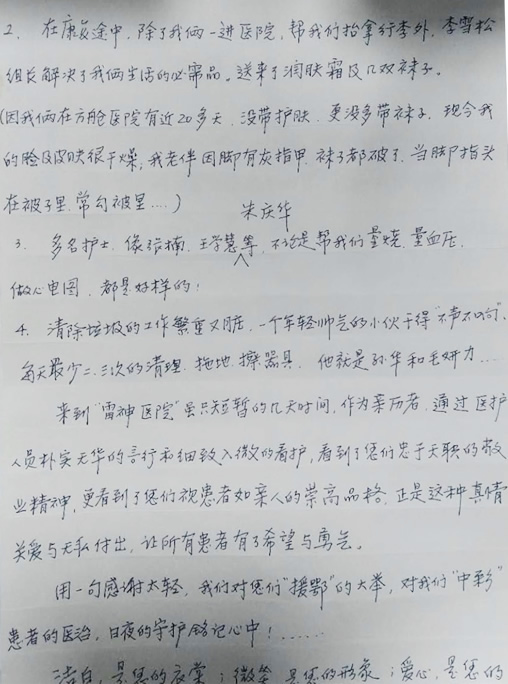 2. 在康复途中，除了我俩一进医院，帮我们抬拿行李外，李雪松
组长解决了我俩生活的必需品。送来了润肤霜及几双袜子。
(因我俩在方舱医院有近20多天，没带护肤，更没多带袜子，现今我
的脸及皮肤很干燥，我老伴因脚有灰指甲，袜子都破了，当脚指头
在被子里，常勾被里....)
朱庆华
3. 多名护士，像张楠，王学慧等，不论是帮我们量烧，量血压，
做心电图，都是好样的！
4. 清除垃圾的工作繁重又脏，一个年轻帅气的小伙干得"不声不响"，
每天最少二、三次的清理，拖地，擦器具，他就是孙华和毛妍力....
来到"雷神医院"虽只短暂的几天时间，作为亲历者，通过医护
人员朴实无华的言行和细致入微的看护，看到了您们忠于天职的敬
业精神，更看到了您们视患者如亲人的崇高品格，正是这种真情
关爱与无私付出，让所有患者有了希望与勇气。
用一句感谢太轻，我们对您们"援鄂"的大举，对我们"中彩"
患者的医治，日夜的守护铭记心中！......
洁白，是您的衣裳；微笑，是您的形象；爱心，是您的